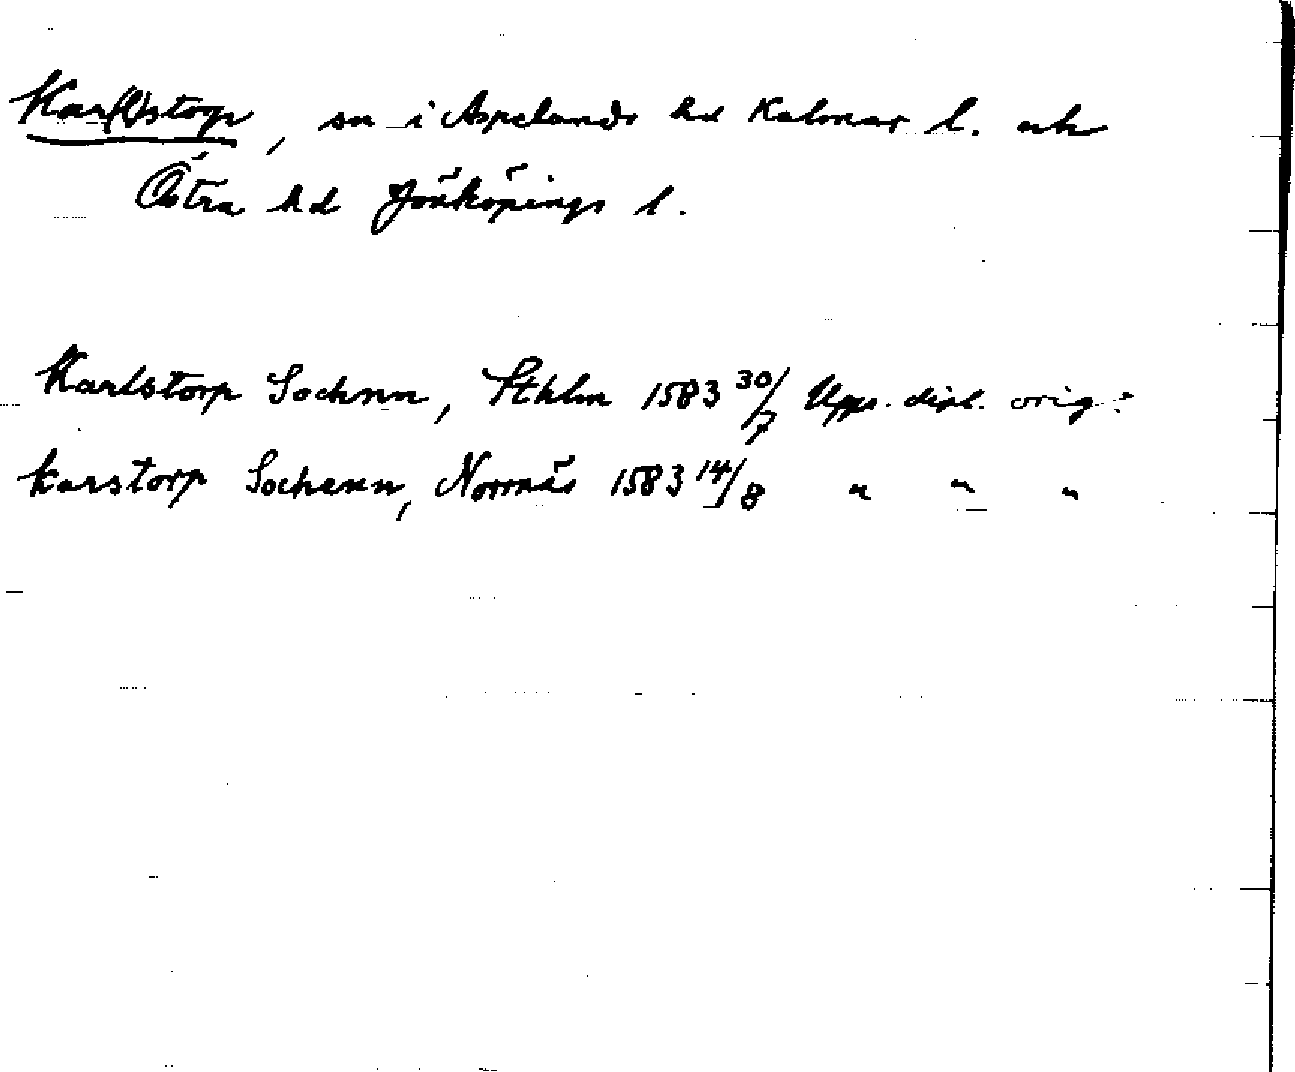 Kar(l)storp, sn i Aspelands hd Kalmar l. och
Östra hd Jönköpings l.
Karlstorp Sochnn, Sthlm 1583 30/7 Upps. dipl. orig:
karstorp Sochenn, Norrnäs 1583 14/8 " " "